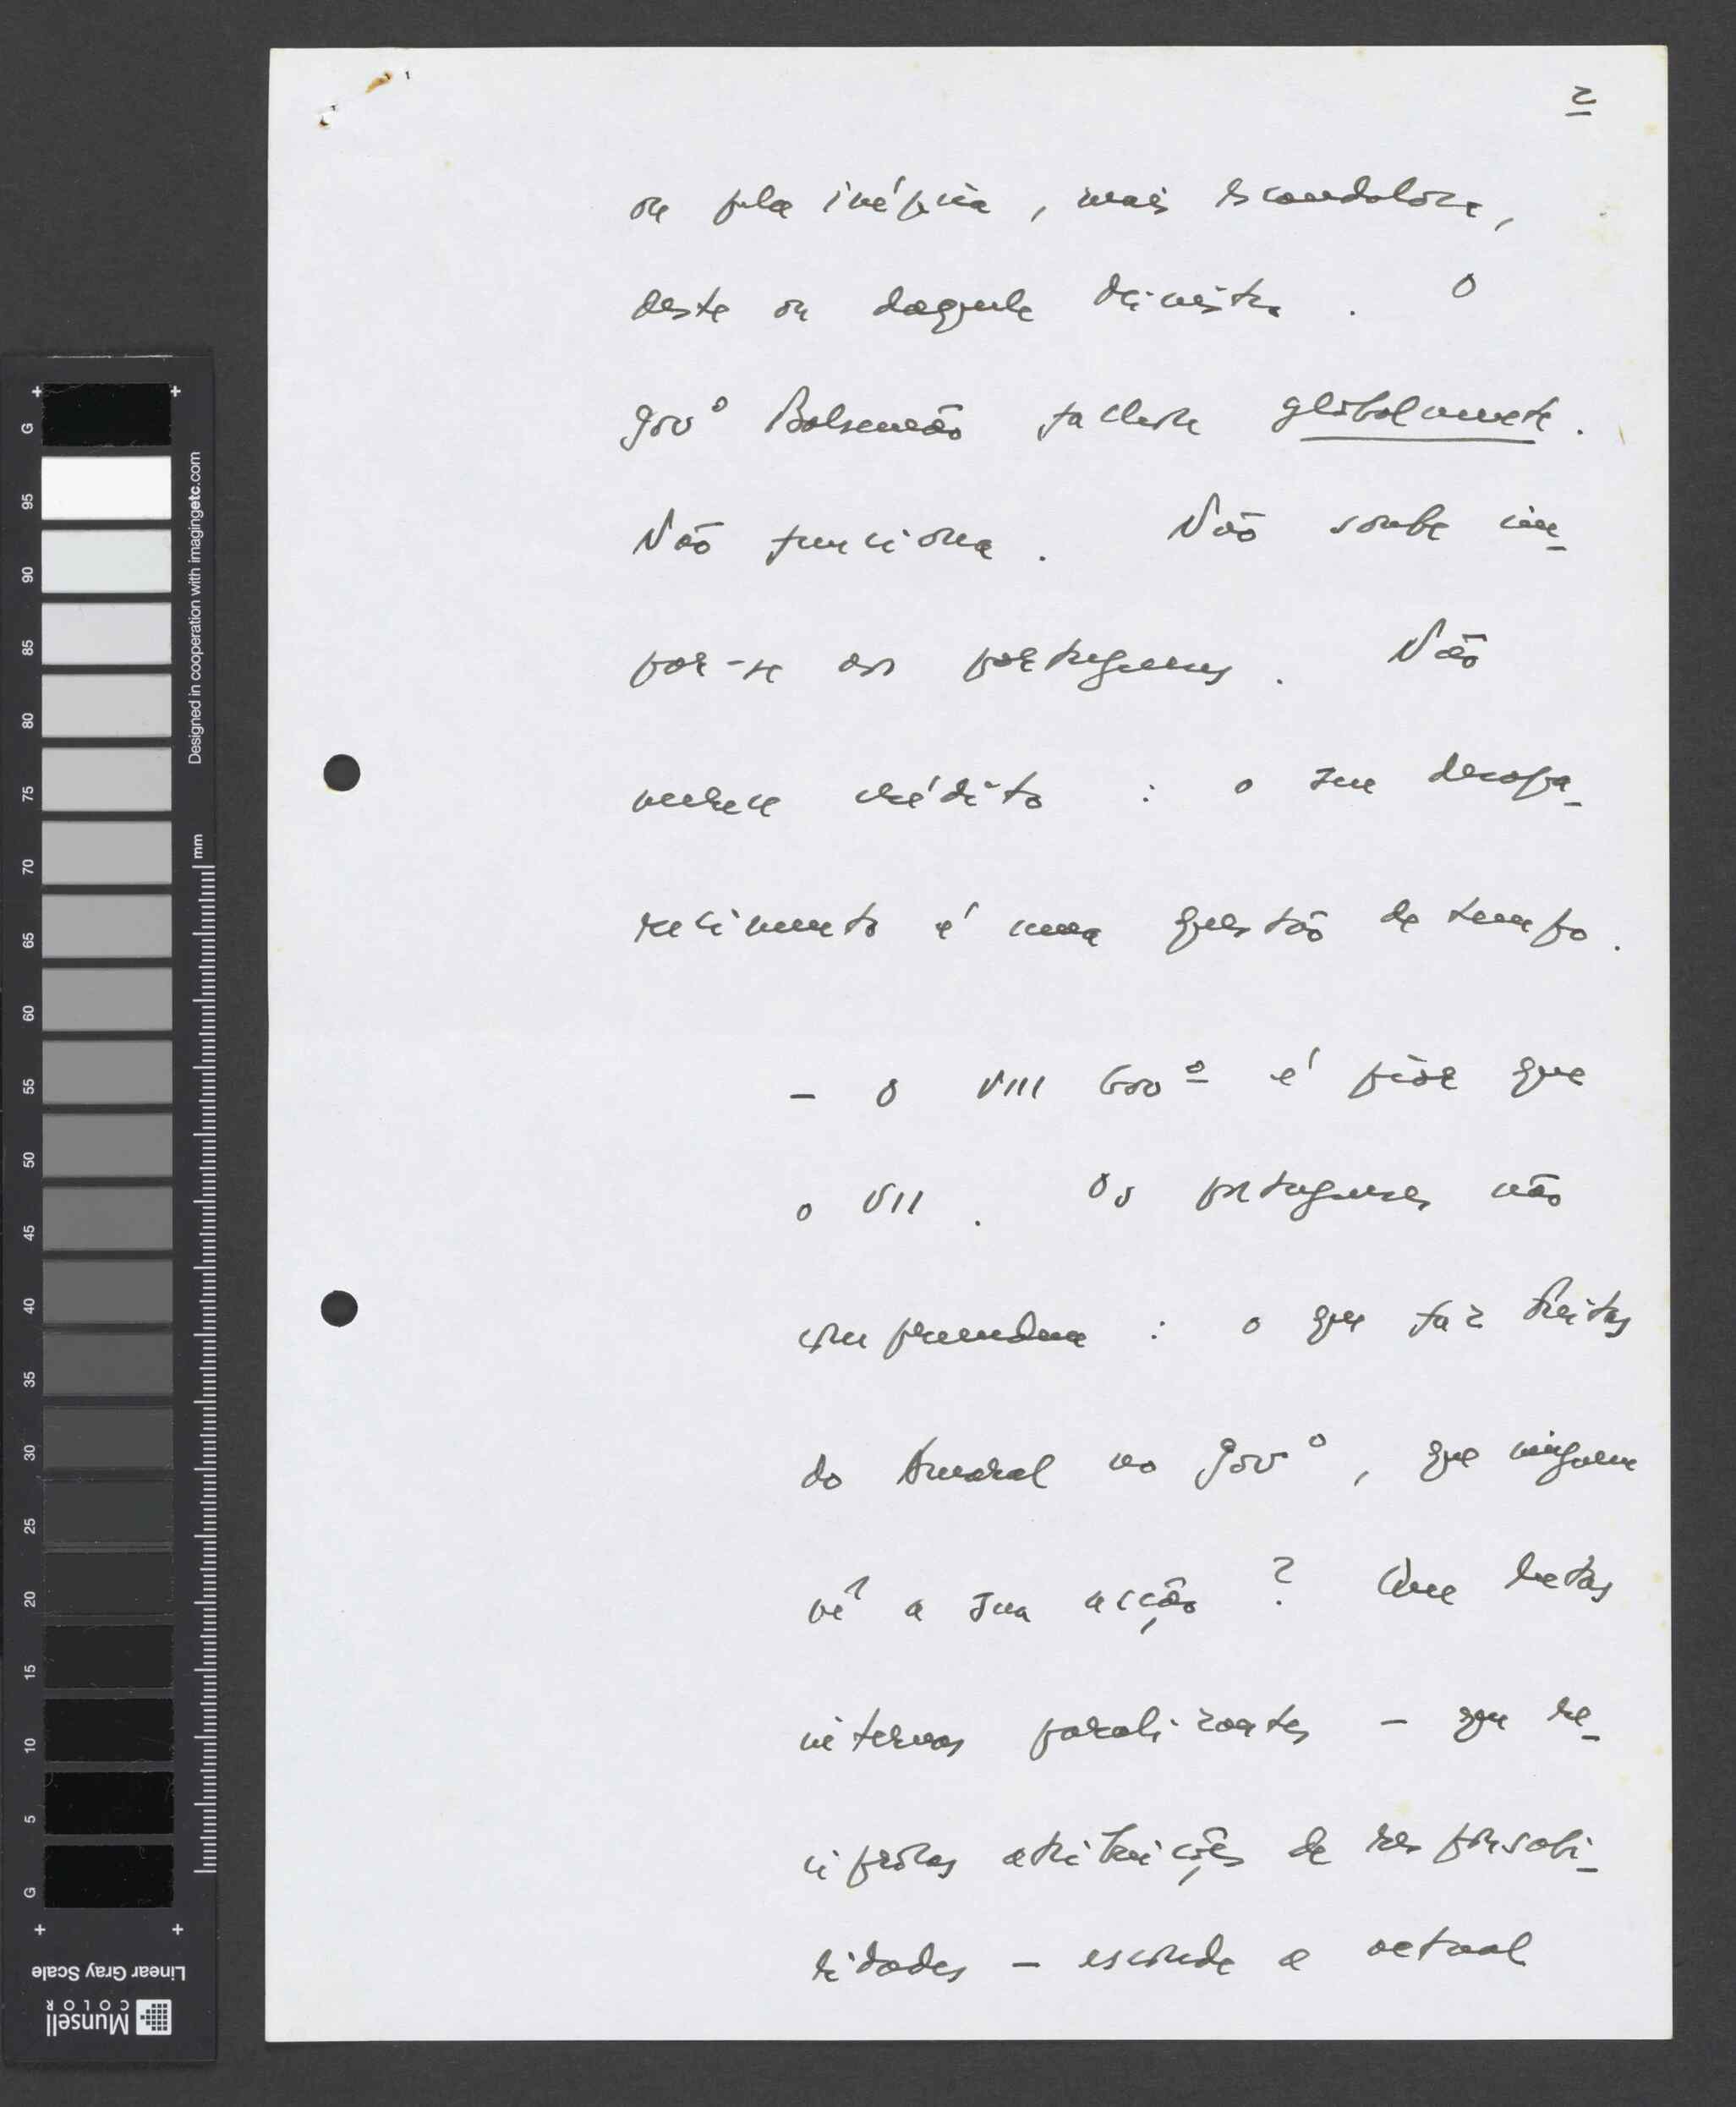 2
ou pela inépcia, mais escandalosa,
deste ou daquele Ministro. O
govº Balsemão falhou globalmente.
Não funciona. Não soube im-
por-se aos portugueses. Não
merece crédito: o seu desapa-
recimento é uma questão de tempo.
- O VIII Govº é pior que
o VII. Os portugueses não
compreendem: o que faz Freitas
do Amaral no govº, que ninguem
vê a sua acção? Que lutas
internas paralizantes - que re-
cíprocas atribuições de responsabi-
lidades - esconde a actual
G 95 90 85 80 75 70 65 60 55 50 45 40 35 30 25 20 15 10 5 G
mm
Designed in cooperation with imagingetc.com
Linear Gray Scale
Munsell
COLOR